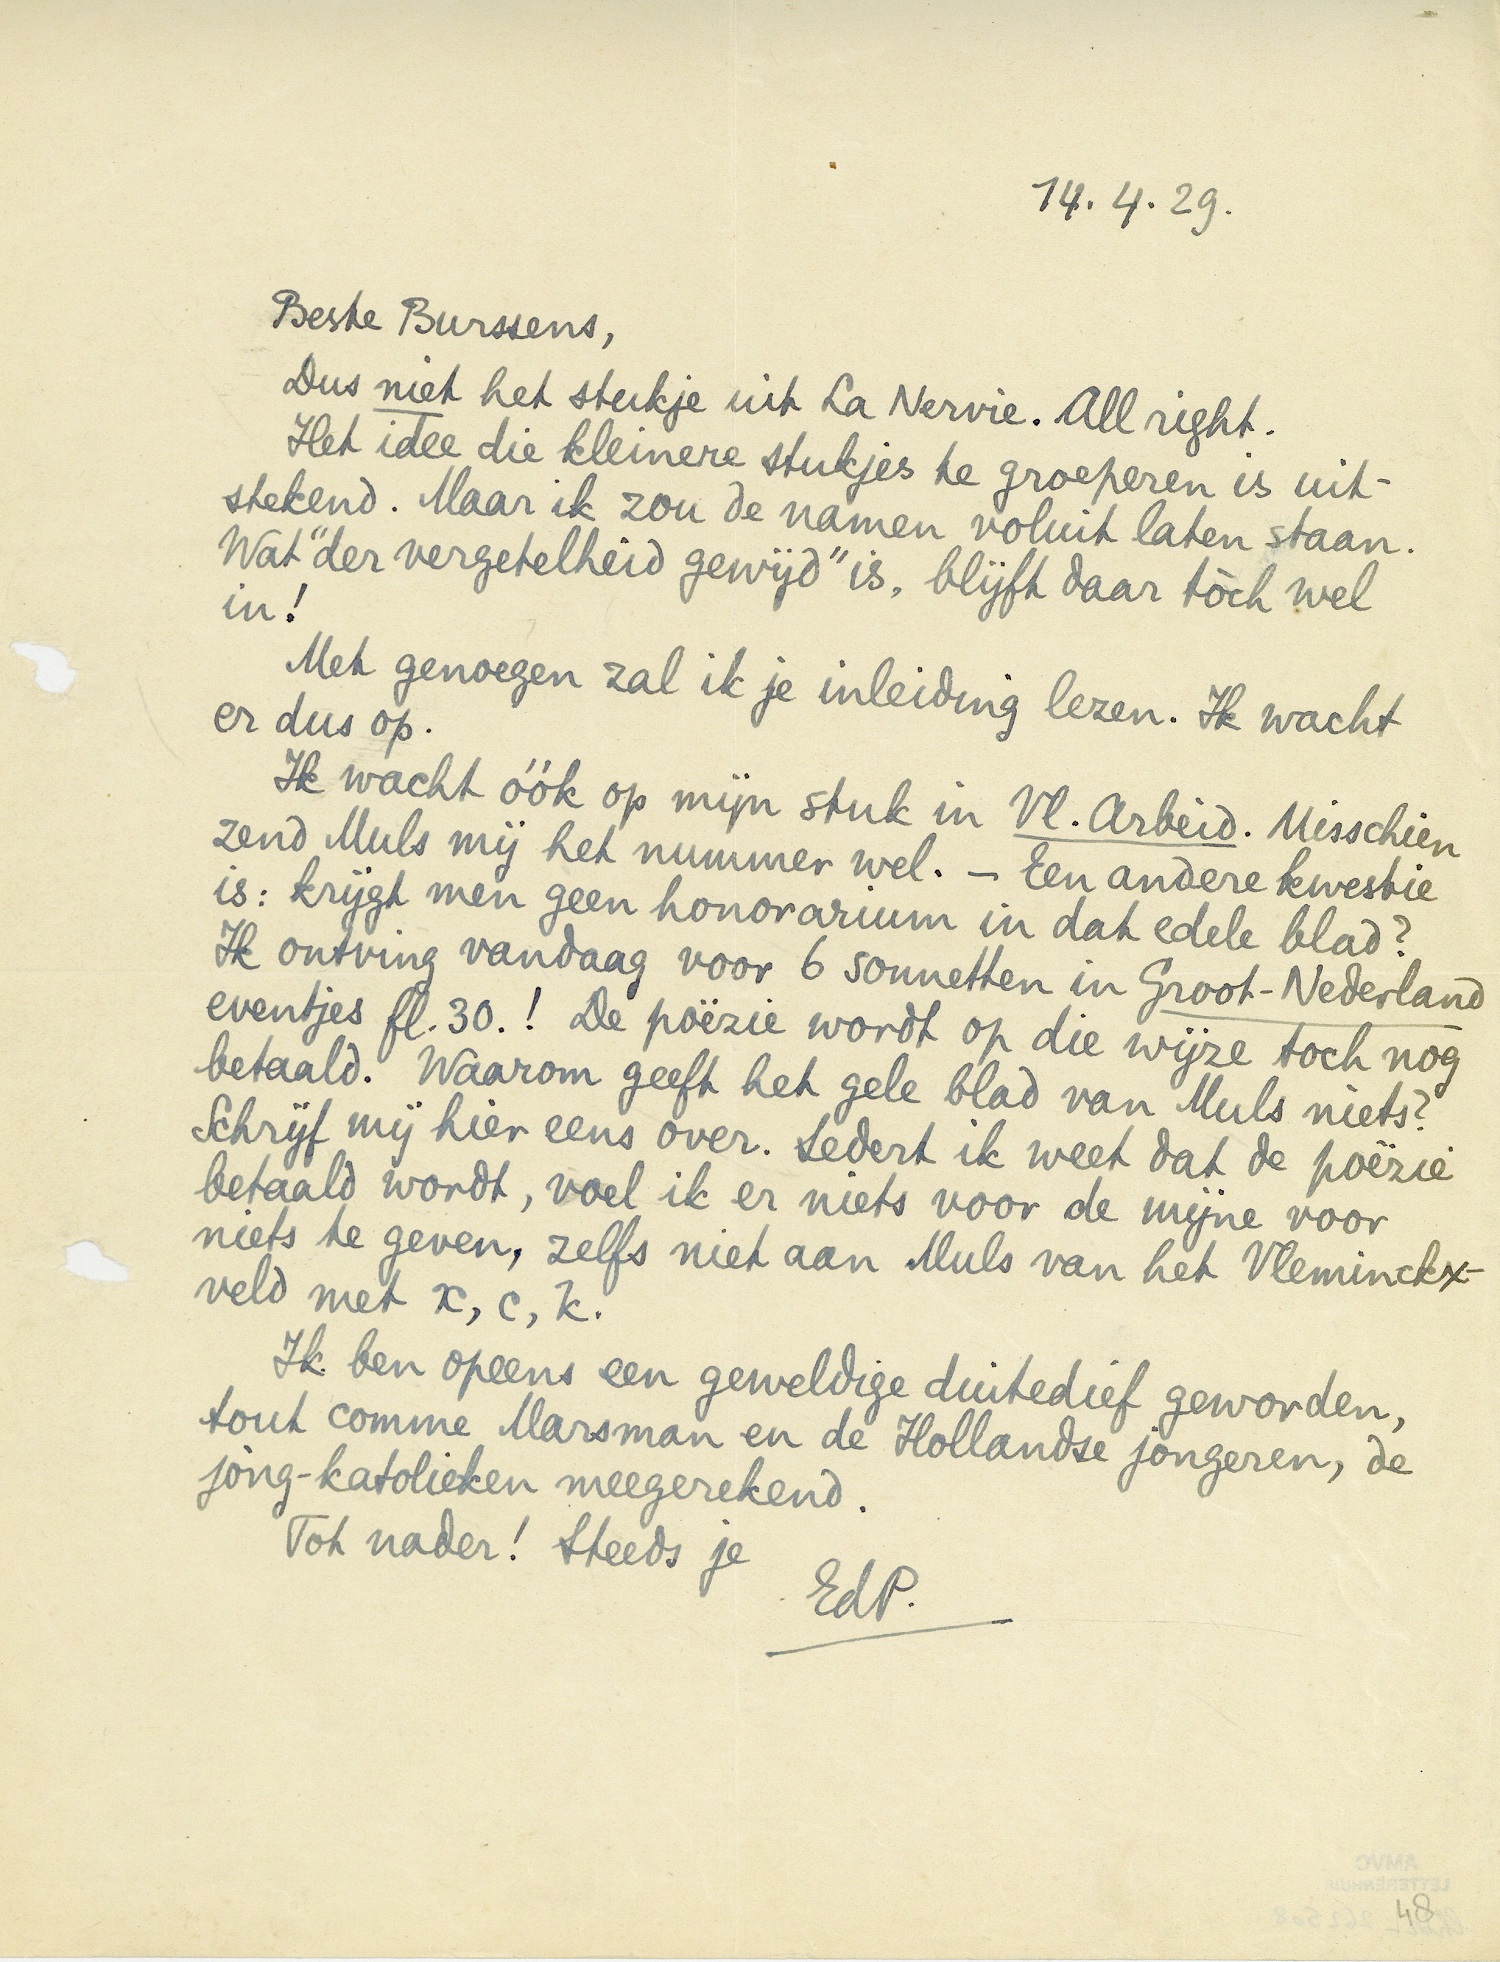 14. 4. 29.
Beste Burssens,
Dus niet het stukje uit La Nervie. All right.
Het idee die kleinere stukjes te groeperen is uit-
stekend. Maar ik zou de namen voluit laten staan.
Wat "der vergetelheid gewijd" is, blijft daar tòch wel
in!
Met genoegen zal ik je inleiding lezen. Ik wacht
er dus op.
Ik wacht óók op mijn stuk in Vl. Arbeid. Misschien
zend Muls mij het nummer wel. — Een andere kwestie
is: krijgt men geen honorarium in dat edele blad?
Ik ontving vandaag voor 6 sonnetten in Groot-Nederland
eventjes fl. 30.! De poëzie wordt op die wijze toch nog
betaald. Waarom geeft het gele blad van Muls niets?
Schrijf mij hier eens over. Sedert ik weet dat de poëzie
betaald wordt, voel ik er niets voor de mijne voor
niets te geven, zelfs niet aan Muls van het Vleminckx-
veld met x, c, k.
Ik ben opeens een geweldige duitedief geworden,
tout comme Marsman en de Hollandse jongeren, de
jong-katolieken meegerekend.
Tot nader! Steeds je
EdP.
AMVC
LETTERENHUIS
48